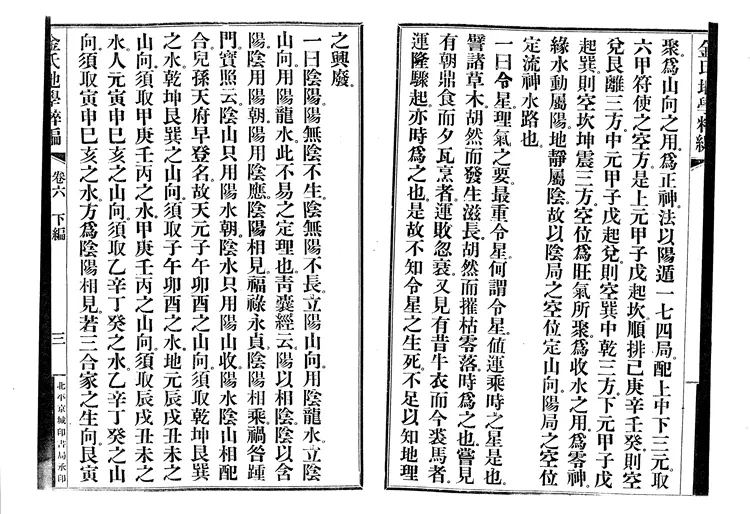 金氏地學粹編
聚爲山向之用爲正神法以陽遁一七四局配上中下三元取
六甲符使之空方是上元甲子戊起坎順排己庚辛壬癸則空
兌艮離三方中元甲子戊起兌則空巽中乾三方下元甲子戊
起巽則空坎坤震三方空位爲旺氣所聚爲收水之用爲零神
緣水動屬陽地靜屬陰故以陰局之空位定山向陽局之空位
定流神水路也
一曰令星理氣之要最重令星何謂令星値運乘時之星是也
譬諸草木胡然而發生滋長胡然而摧枯零落時爲之也嘗見
有朝鼎食而夕瓦烹者運敗忽衰又見有昔牛衣而今裘馬者
運隆驟起亦時爲之也是故不知令星之生死不足以知地理
之興廢
一曰陰陽陽無陰不生陰無陽不長立陽山向用陰龍水立陰
山向用陽龍水此不易之定理也靑囊經云陽以相陰陰以含
陽陰用陽朝陽用陰應陰陽相見福祿永貞陰陽相乘禍咎踵
門寶照云陰山只用陽水朝陰水只用陽山收陽水陰山相配
合兒孫天府早登名故天元子午卯酉之山向須取乾坤艮巽
之水乾坤艮巽之山向須取子午卯酉之水地元辰戌丑未之
山向須取甲庚壬丙之水甲庚壬丙之山向須取辰戌丑未之
水人元寅申巳亥之山向須取乙辛丁癸之水乙辛丁癸之山
向須取寅申巳亥之水方爲陰陽相見若三合家之生向艮寅
金氏地學粹編
卷六 下編
三
北平京城印書局承印